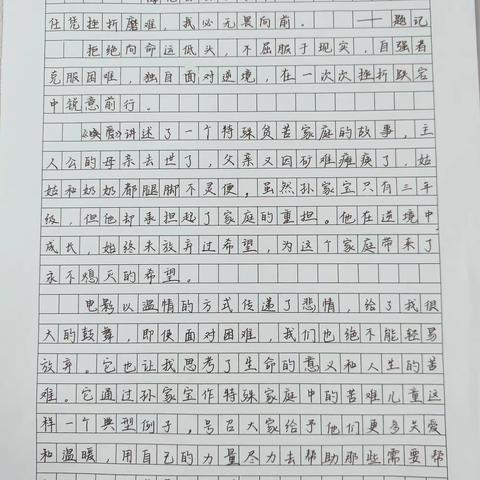 任凭挫折磨难，我必无畏向前。 ——题记
拒绝向命运低头，不屈服于现实，自强者
克服困难，独自面对逆境，在一次次挫折跌宕
中锐意前行。
《唤爱》讲述了一个特殊贫苦家庭的故事，主
人公的母亲去世了，父亲又因矿难瘫痪了，姑
姑和奶奶都腿脚不灵便，虽然孙家宝只有三年
级，但他却承担起了家庭的重担。他在逆境中
成长，始终未放弃过希望，为这个家庭带来了
永不熄灭的希望。
电影以温情的方式传递了悲情，给了我很
大的鼓舞，即使面对困难，我们也绝不能轻易
放弃。它也让我思考了生命的意义和人生的苦
难。它通过孙家宝作特殊家庭中的苦难儿童这
样一个典型例子，号召大家给予他们更多关爱
和温暖，用自己的力量尽力去帮助那些需要帮